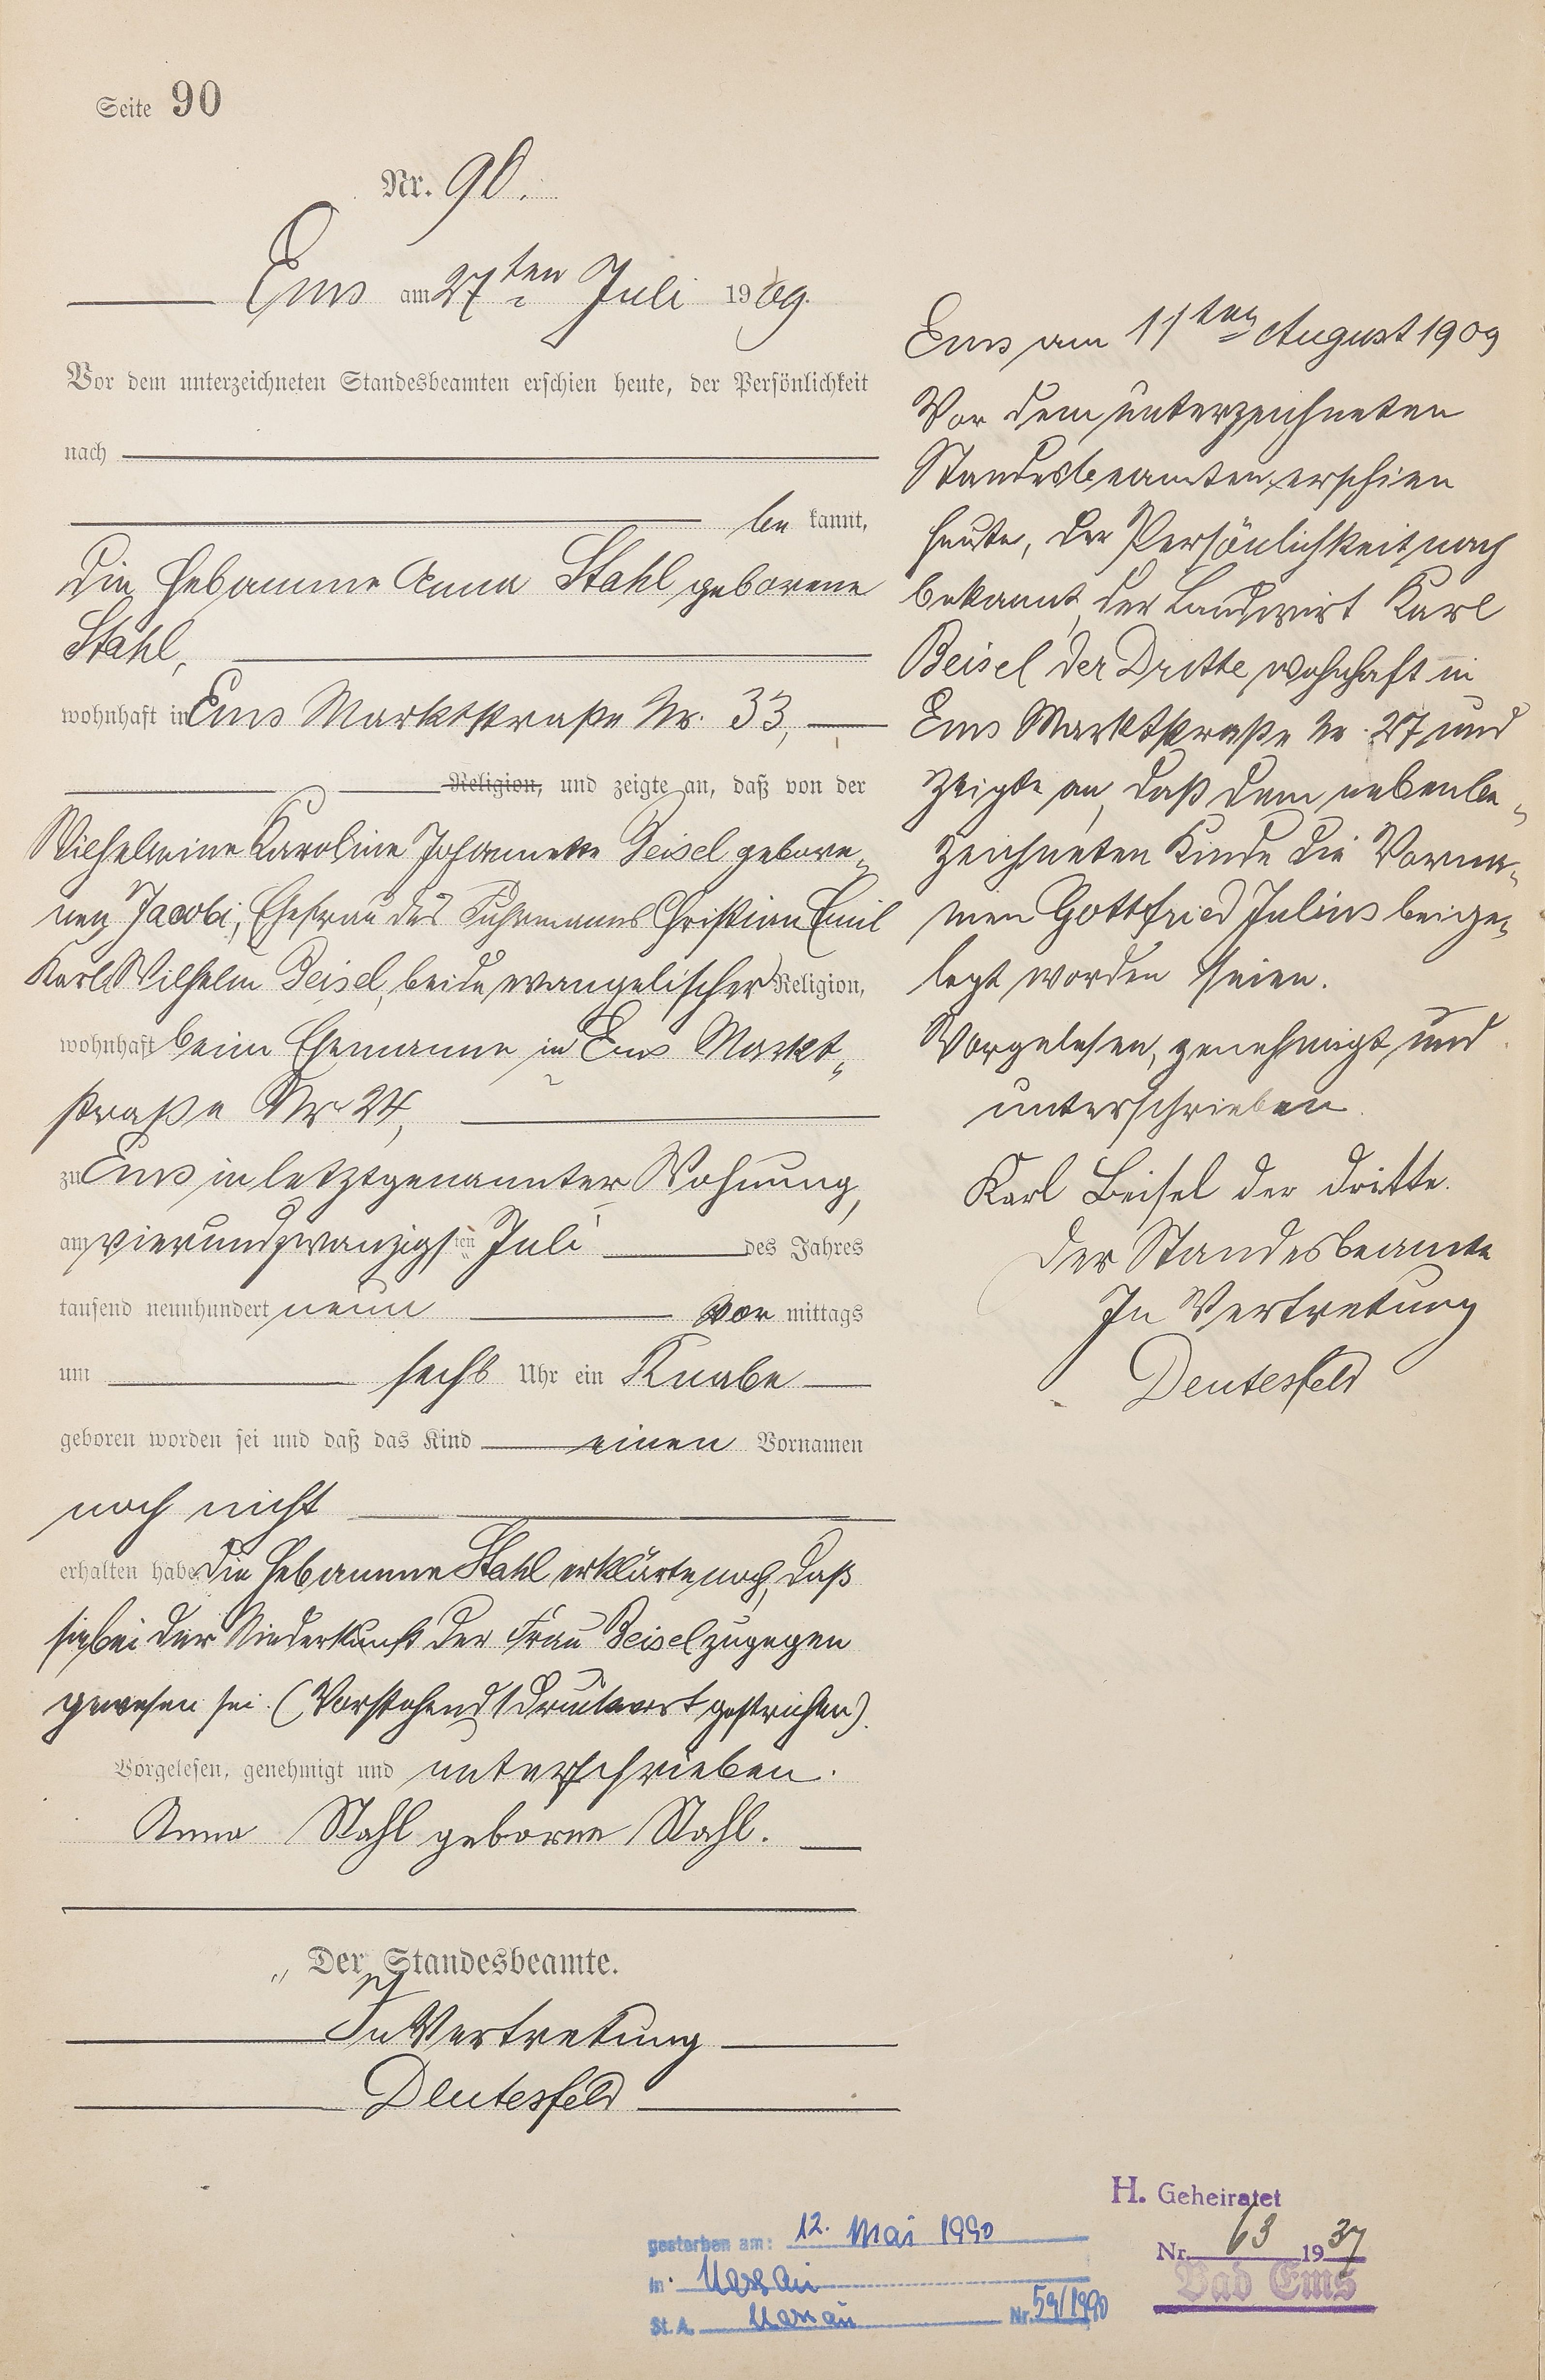 Seite 90
Nr. 90.
Ems am 27ten Juli 1909.
Vor dem unterzeichneten Standesbeamten erschien heute, der Persönlichkeit
nach
be kannt,
die Hebamme Anna Stahl geborene
Stahl,
wohnhaft in Ems Marktstraße Nr. 33,
Religion, und zeigte an, daß von der
Wilhelmine Karoline Johannette Beisel gebore-
nen Jacobi, Ehefrau des Fuhrmanns Christian Emil
Karl Wilhelm Beisel, beide evangelischer Religion,
wohnhaft beim Ehemanne in Ems Markt-
straße Nr. 24,
zu Ems in letztgenannter Wohnung,
am vierundzwanzigsten Juli des Jahres
tausend neunhundert neun vor mittags
um sechs Uhr ein Knabe
geboren worden sei und daß das Kind einen Vornamen
noch nicht
erhalten habe. Die Hebamme Stahl erklärte noch, daß
sie bei der Niederkunft der Frau Beisel zugegen
gewesen sei. (Vorstehend 1 Druckwort gestrichen).
Vorgelesen, genehmigt und unterschrieben.
Anna Stahl geborne Stahl.
Der Standesbeamte.
In Vertretung
Deutesfeld
Ems am 11ten August 1909
Vor dem unterzeichneten
Standesbeamten erschien
heute, der Persönlichkeit nach
bekannt, der Landwirt Karl
Beisel der Dritte, wohnhaft in
Ems Marktstraße Nr. 27, und
zeigte an, daß dem nebenbe-
zeichneten Kinde die Vorna-
men Gottfried Julius beige-
legt worden seien.
Vorgelesen, genehmigt und
unterschrieben.
Karl Beisel der dritte.
Der Standesbeamte
In Vertretung
Deutesfeld
H. Geheiratet
Nr. 63 1937
Bad Ems
gestorben am: 12. Mai 1990
in Nassau
St. A. Nassau Nr. 59/1990